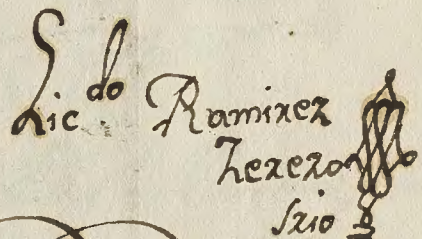 Lic.do Ramirez
Zerezo
Srio